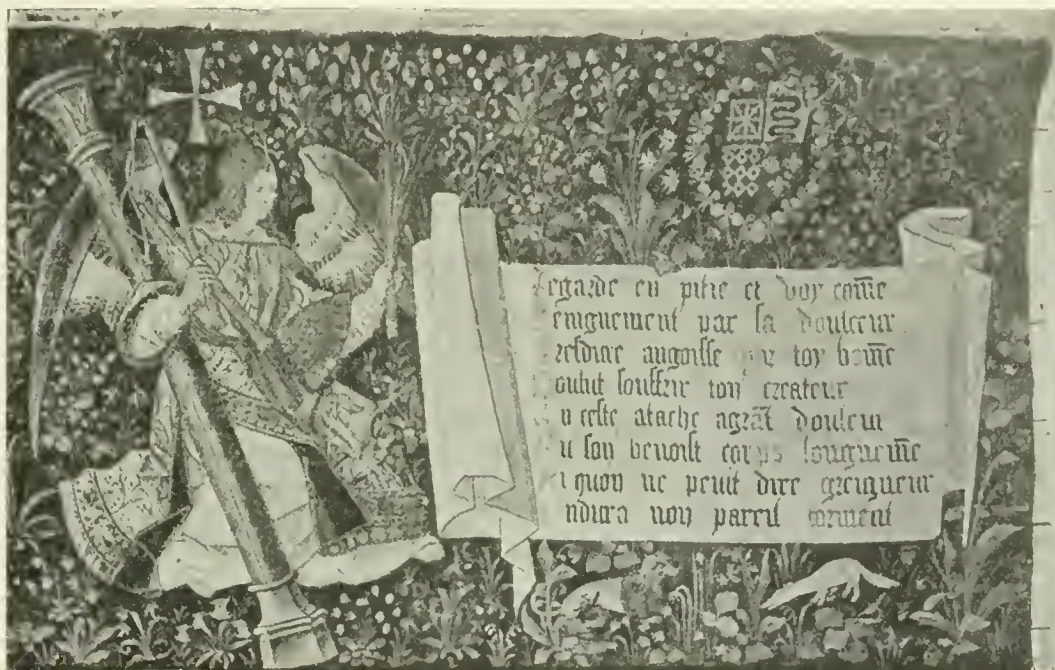 Regarde en pitie et voy com̄e
enignement par la douleeur
resdure angoisse que toy hom̄e
oulut souffrir ton createur
u ceste atache agrāt douleur
u son benoist corps longuem̄e
i quon ne peult dire greigneur
ndura non pareil torment